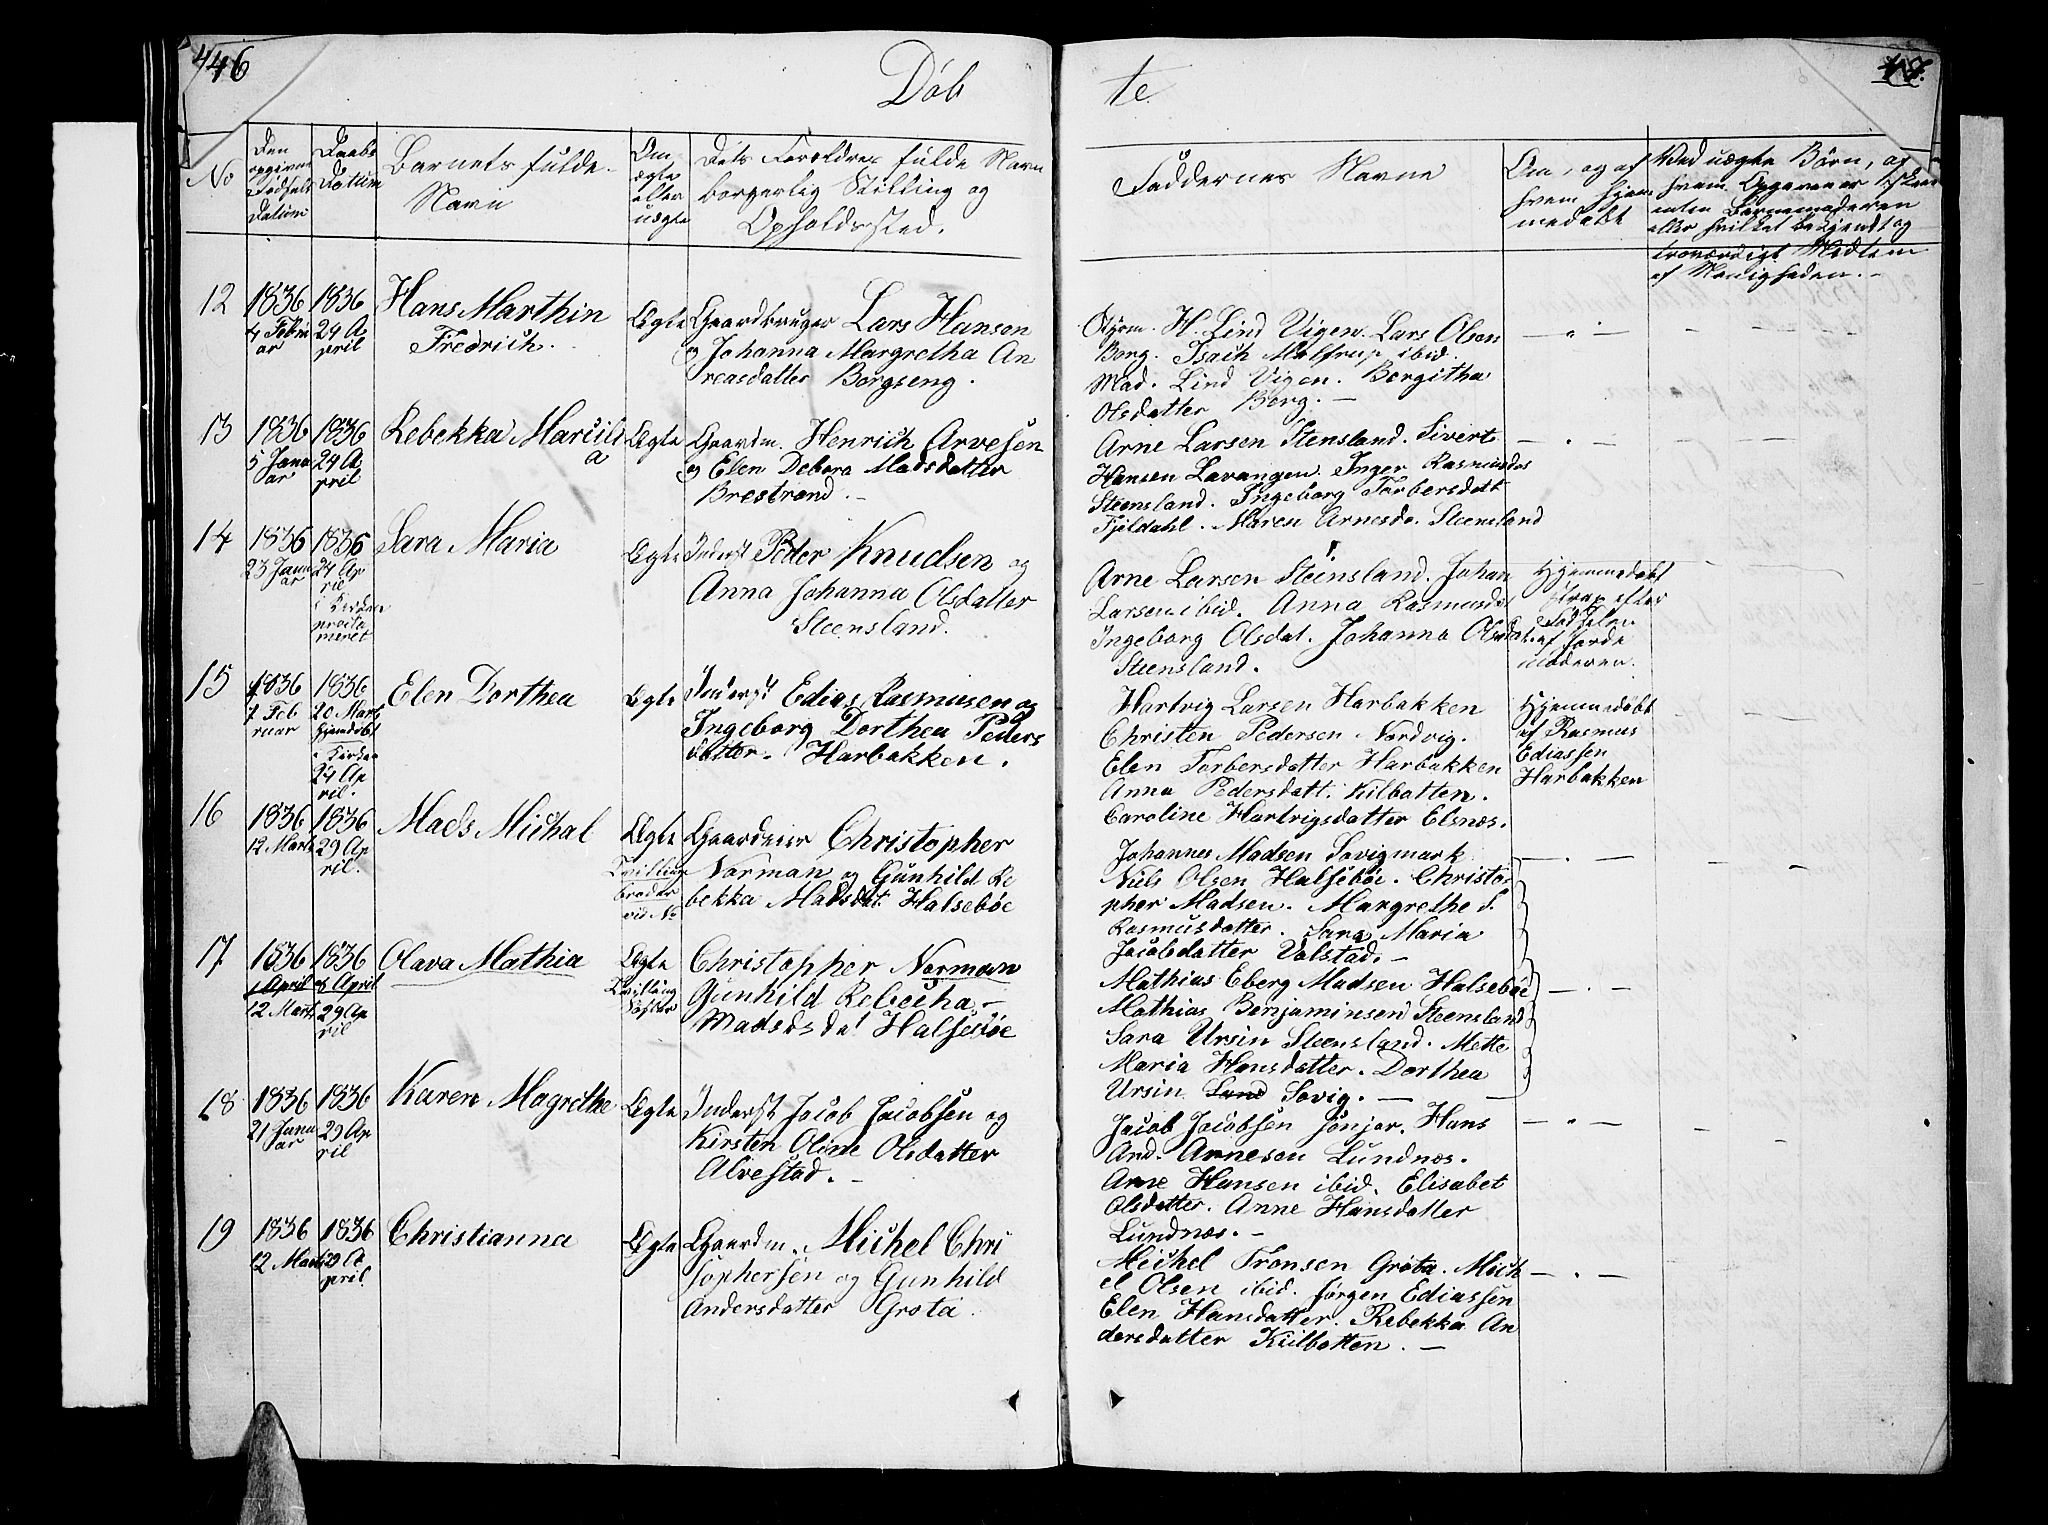 446
Döb
te
No
Den
opgivne
Födsels
Datum
Daabs
Datum
Barnets fulde
Navn
Om
ægte
eller
uægte
Dets Forældres fulde Navn
borgerlig Stilling og
Opholdssted.
Faddernes Navne
Om, og af
hvem hjem
medøbt
Ved uægte Börn, af
hvem Opgaven er skeet
enten Barnemoderen
eller hvilket bekjendt og
troværdigt Medlem
af Menigheden.
12
1836
4 Febru
ar
1836
24 A
pril
Hans Marthin
Fredrich.
Ægte
Gaardbruger Lars Hansen
og Johanna Margretha An
reasdatter Borgseng.
Styrm. H. Lind Vigen. Lars Olsen
Borg. Isach Moltrup ibid.
Mad. Lind Vigen. Bergitha
Olsdatter Borg. —
13
1836
5 Janu
ar
1836
24 A
pril
Rebekka Marcili
a
Ægte
Gaardm. Henrich Arvesen
og Elen Debora Madsdatter
Brestrand. —
Arne Larsen Stensland. Sivert
Hansen Lavangen. Inger Rasmusdat
Steensland. Ingeborg Torbersdatt
Fjeldahl. Maren Arnesda. Steensland
14
1836
23 Janu
ar
1836
24 Ap
ril
i Kirken
præsta
meret
Sara Maria
Ægte
Inderst Peder Knudsen og
Anna Johanna Olsdatter
Steensland.
Arne Larsen Steinsland. Johan
Larsen ibid. Anna Rasmusdat
Ingeborg Olsdat. Johanna Olsdat
Steensland.
Hjemmedøbt
strax efter
Födselen
af Jorde
moderen.
15
1836
7 Feb
ruar
1836
20 Mart
hjemdøbt
i Kirken
24 Ap
ril.
Elen Dorthea
Ægte
Inderst Edias Rasmusen og
Ingeborg Dorthea Peders
datter. Harbakken.
Hartvig Larsen Harbakken
Christen Pedersen Nordvig.
Elen Torbersdatter Harbakken
Anna Pedersdatt. Kilbotten.
Caroline Hartvigsdatter Elsnæs.
Hjemmedøbt
af Rasmus
Ediassen
Harbakken
16
1836
12 Marts
1836
29 Ap
ril.
Mads Michal
Ægte
Tvilling
broder
vid No
Gaardeier Christopher
Norman og Gunhild Re
bekka Madsdat. Halsebøe
Johannes Madsen Sovigmark
Niels Olsen Halsebøe. Christo
pher Madsen. Margrethe S.
Rasmusdatter. Sara Maria
Jacobdatter Volstad. —
17
1836
1 April
12 Mart
1836
8 April
29 Ap
ril
Olava Mathia
Ægte
Tvilling
Söster
Christopher Norman
Gunhild Rebecha —
Madsdsdat Halsebøe
Mathias Eberg Madsen Halsebøe
Mathias Benjaminsen Steensland
Sara Ursin Steensland. Mette
Maria Hansdatter. Dorthea
Ursin Sand Sovig. —
18
1836
21 Janu
ar
1836
29 Ap
ril
Karen Magrethe
Ægte
Inderst Jacob Jacobsen og
Kirsten Oline Olsdatter
Alvestad. —
Jacob Jacobsen Sönjer. Hans
And. Arnesen Lundnæs.
Arne Hansen ibid. Elisabet
Olsdatter. Anne Hansdatter
Lundnæs. —
19
1836
12 Marts
1836
29 A
pril
Christianna
Ægte
Gaardm. Michel Chri
sophersen og Gunhild
Andersdatter Grota.
Michel Tronsen Grota. Mich
el Olsen ibid. Jörgen Ediassen
Elen Hansdatter. Rebekka An
dersdatter Kielbotten. —